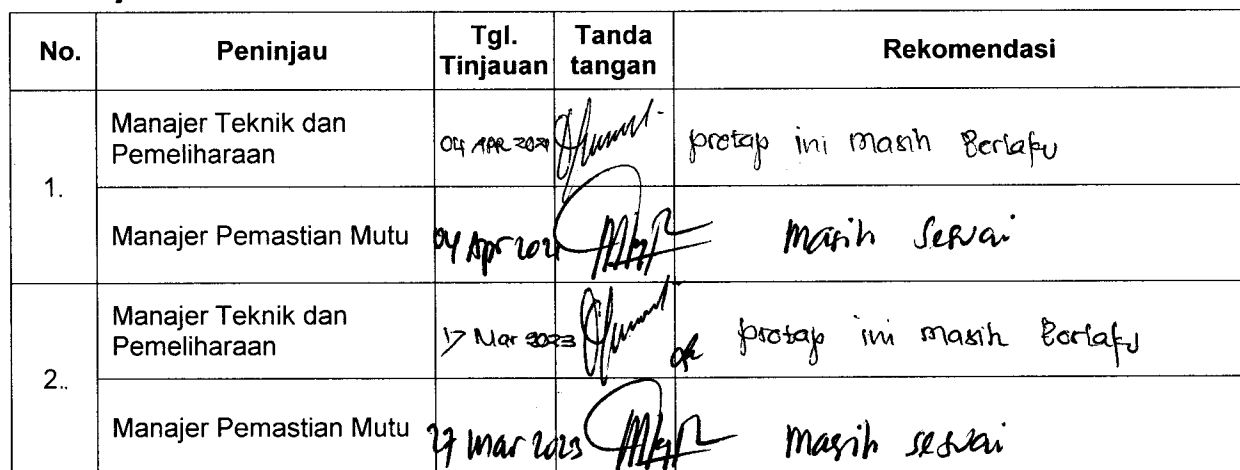 No. Peninjau Tgl. Tinjauan Tanda tangan Rekomendasi
1.
Manajer Teknik dan Pemeliharaan 04 APR 2021 protap ini masih Berlaku
Manajer Pemastian Mutu 04 Apr 2021 Masih sesuai
2..
Manajer Teknik dan Pemeliharaan 17 Mar 2023 protap ini masih Berlaku
Manajer Pemastian Mutu 27 Mar 2023 Masih sesuai